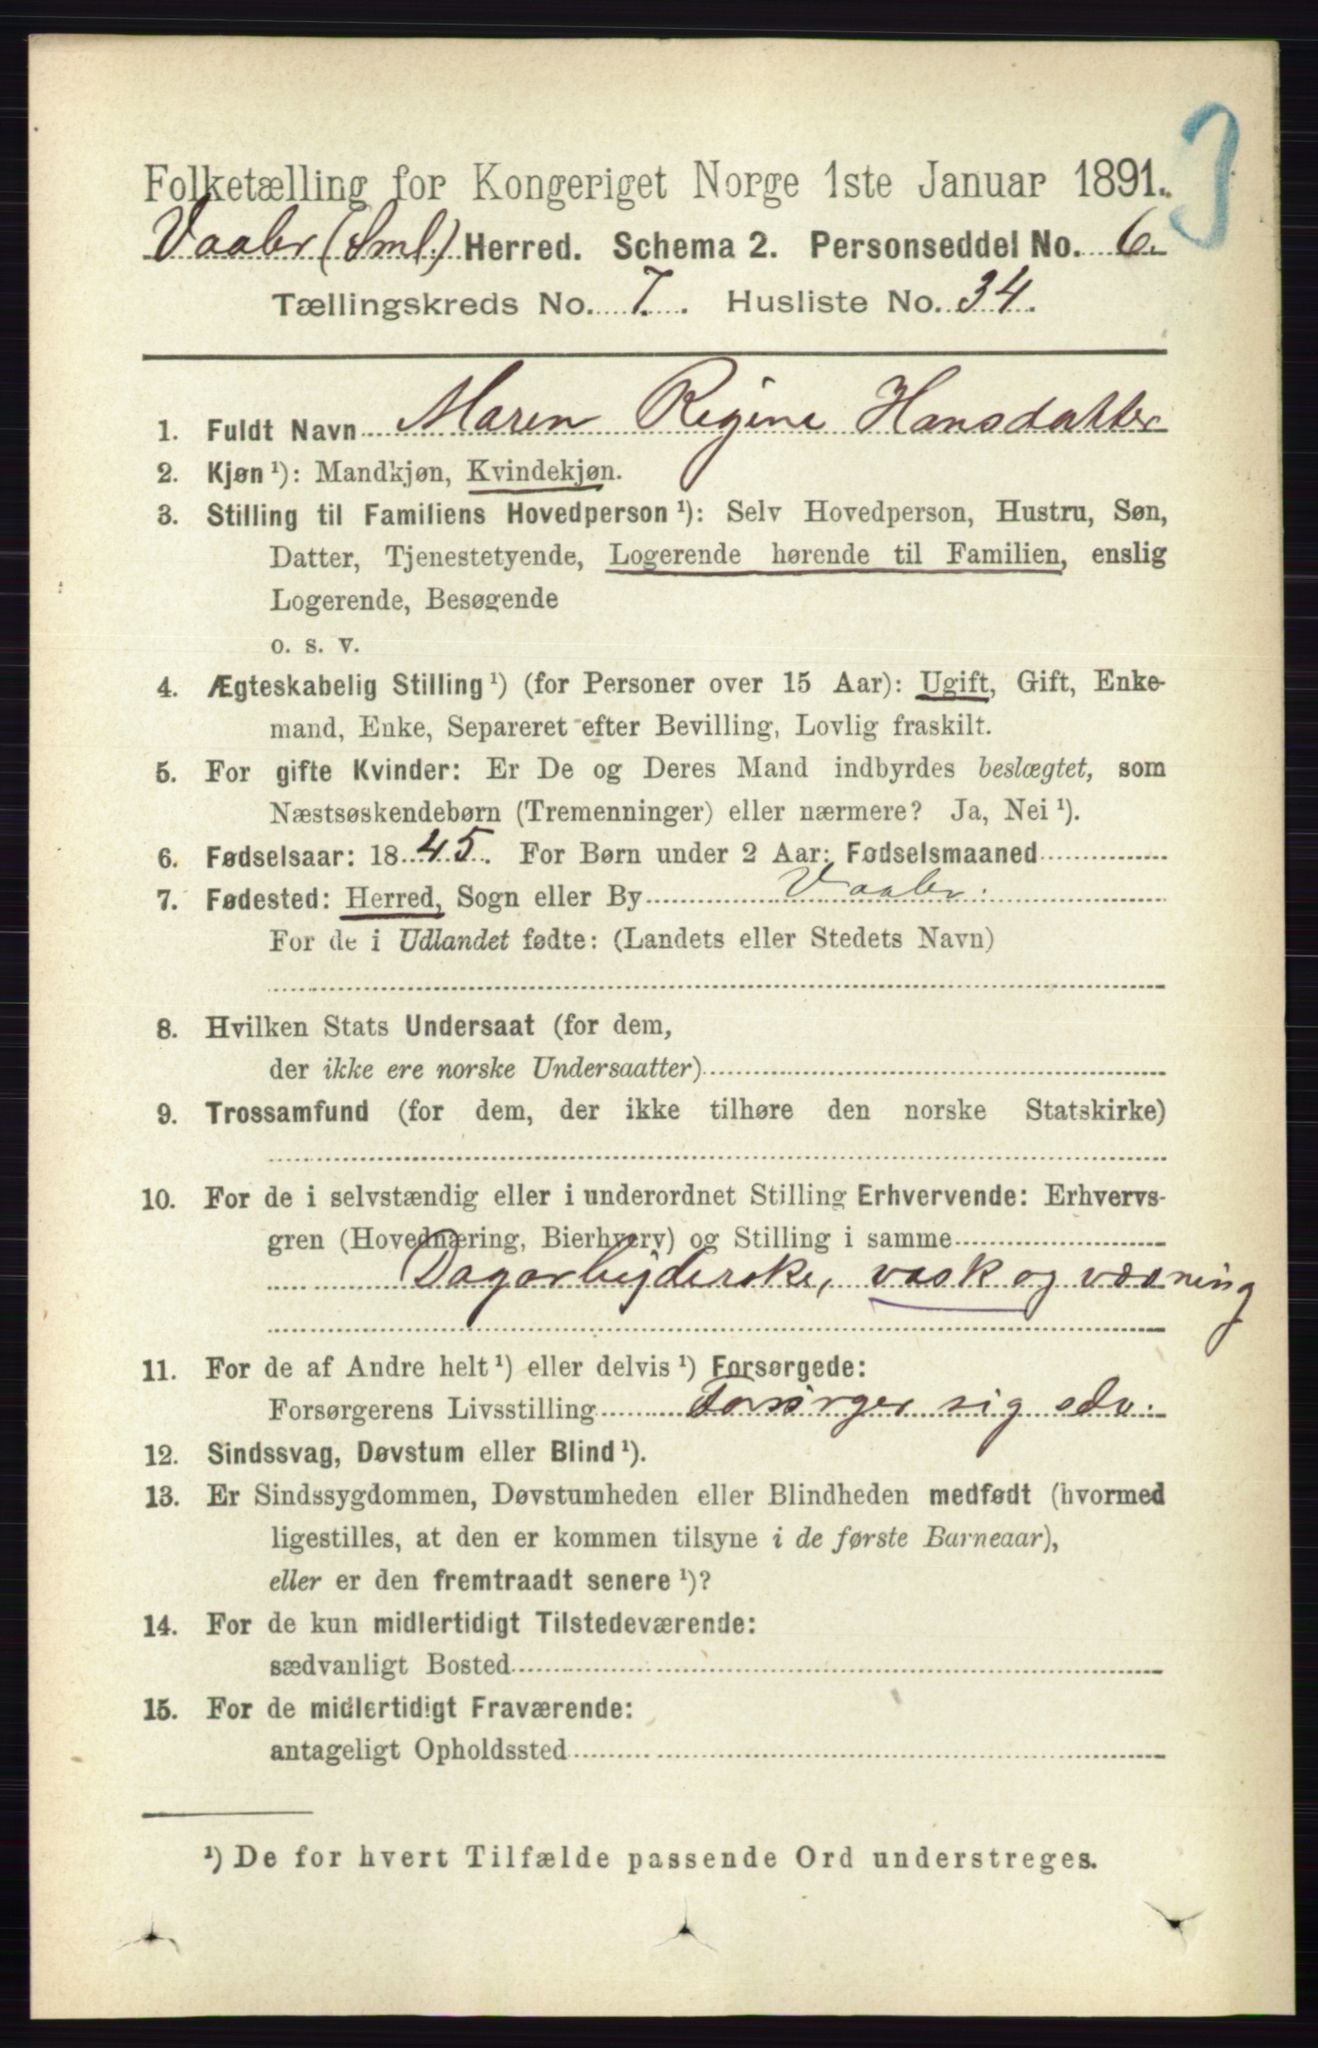 3
Folketælling for Kongeriget Norge 1ste Januar 1891.
Vaaler (Sml.) Herred. Schema 2. Personseddel No. 6.
Tællingskreds No. 7. Husliste No. 34.
1. Fuldt Navn Maren Regine Hansdatter
2. Kjøn¹): Mandkjøn, Kvindekjøn.
3. Stilling til Familiens Hovedperson¹): Selv Hovedperson, Hustru, Søn,
Datter, Tjenestetyende, Logerende hørende til Familien, enslig
Logerende, Besøgende
o. s. v.
4. Ægteskabelig Stilling¹) (for Personer over 15 Aar): Ugift, Gift, Enke-
mand, Enke, Separeret efter Bevilling, Lovlig fraskilt.
5. For gifte Kvinder: Er De og Deres Mand indbyrdes beslægtet, som
Næstsøskendebørn (Tremenninger) eller nærmere? Ja, Nei¹).
6. Fødselsaar: 1845. For Børn under 2 Aar: Fødselsmaaned
7. Fødested: Herred, Sogn eller By Vaaler.
For de i Udlandet fødte: (Landets eller Stedets Navn)
8. Hvilken Stats Undersaat (for dem,
der ikke ere norske Undersaatter)
9. Trossamfund (for dem, der ikke tilhøre den norske Statskirke)
10. For de i selvstændig eller i underordnet Stilling Erhvervende: Erhvervs-
gren (Hovednæring, Bierhverv) og Stilling i samme
Dagarbejderske, vask og vævning
11. For de af Andre helt¹) eller delvis¹) Forsørgede:
Forsørgerens Livsstilling Forsørger sig selv.
12. Sindssvag, Døvstum eller Blind¹).
13. Er Sindssygdommen, Døvstumheden eller Blindheden medfødt (hvormed
ligestilles, at den er kommen tilsyne i de første Barneaar),
eller er den fremtraadt senere¹)?
14. For de kun midlertidigt Tilstedeværende:
sædvanligt Bosted
15. For de midlertidigt Fraværende:
antageligt Opholdssted
¹) De for hvert Tilfælde passende Ord understreges.